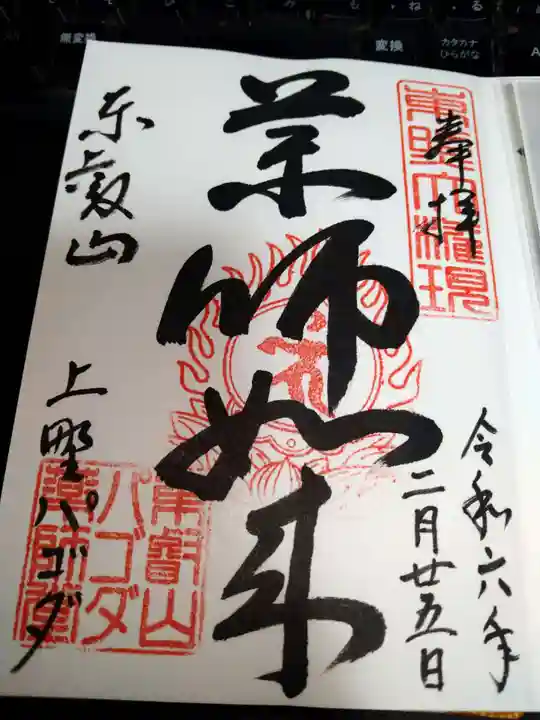 無変換
変換
カタカナ
ひらがな
奉拝
東照大権現
令和六年
二月廿五日
薬師如来
東叡山
上野パゴダ
東叡山
パゴダ
薬師堂